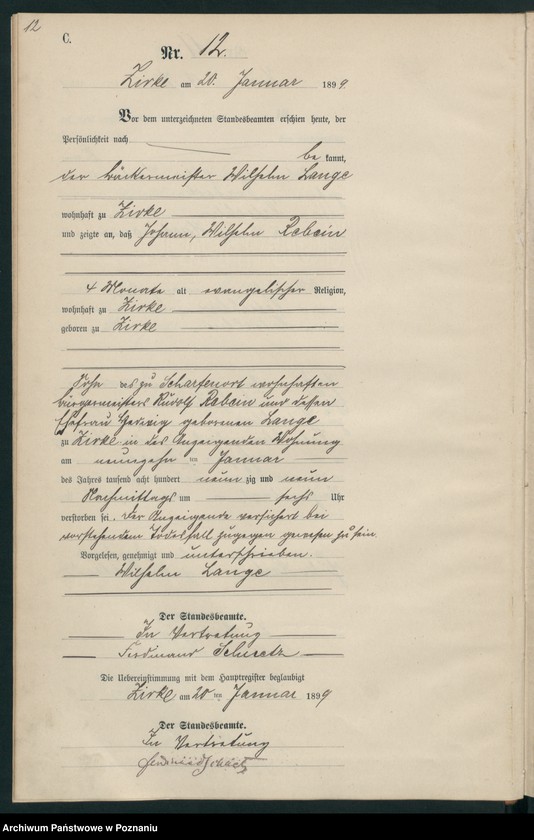 12
C.
Nr. 12.
Zirke am 20. Januar 1899.
Vor dem unterzeichneten Standesbeamten erschien heute, der
Persönlichkeit nach
be kannt,
der Bäckermeister Wilhelm Lange
wohnhaft zu Zirke
und zeigte an, daß Johann, Wilhelm Rebein
4 Monate alt evangelischer Religion,
wohnhaft zu Zirke
geboren zu Zirke
Sohn des zu Scharfenort wohnhaften
Bürgermeisters Rudolf Rebein und dessen
Ehefrau Hedwig geborenen Lange
zu Zirke in des Anzeigenden Wohnung
am neunzehn ten Januar
des Jahres tausend acht hundert neun zig und neun
Nachmittags um sechs Uhr
verstorben sei. Der Anzeigende versichert bei
vorstehendem Todesfall zugegen gewesen zu sein.
Vorgelesen, genehmigt und unterschrieben.
Wilhelm Lange
Der Standesbeamte.
In Vertretung
Ferdinand
Die Uebereinstimmung mit dem Hauptregister beglaubigt
Zirke am 20 ten Januar 1899
Der Standesbeamte.
In Vertretung
Ferdinand
Archiwum Państwowe w Poznaniu